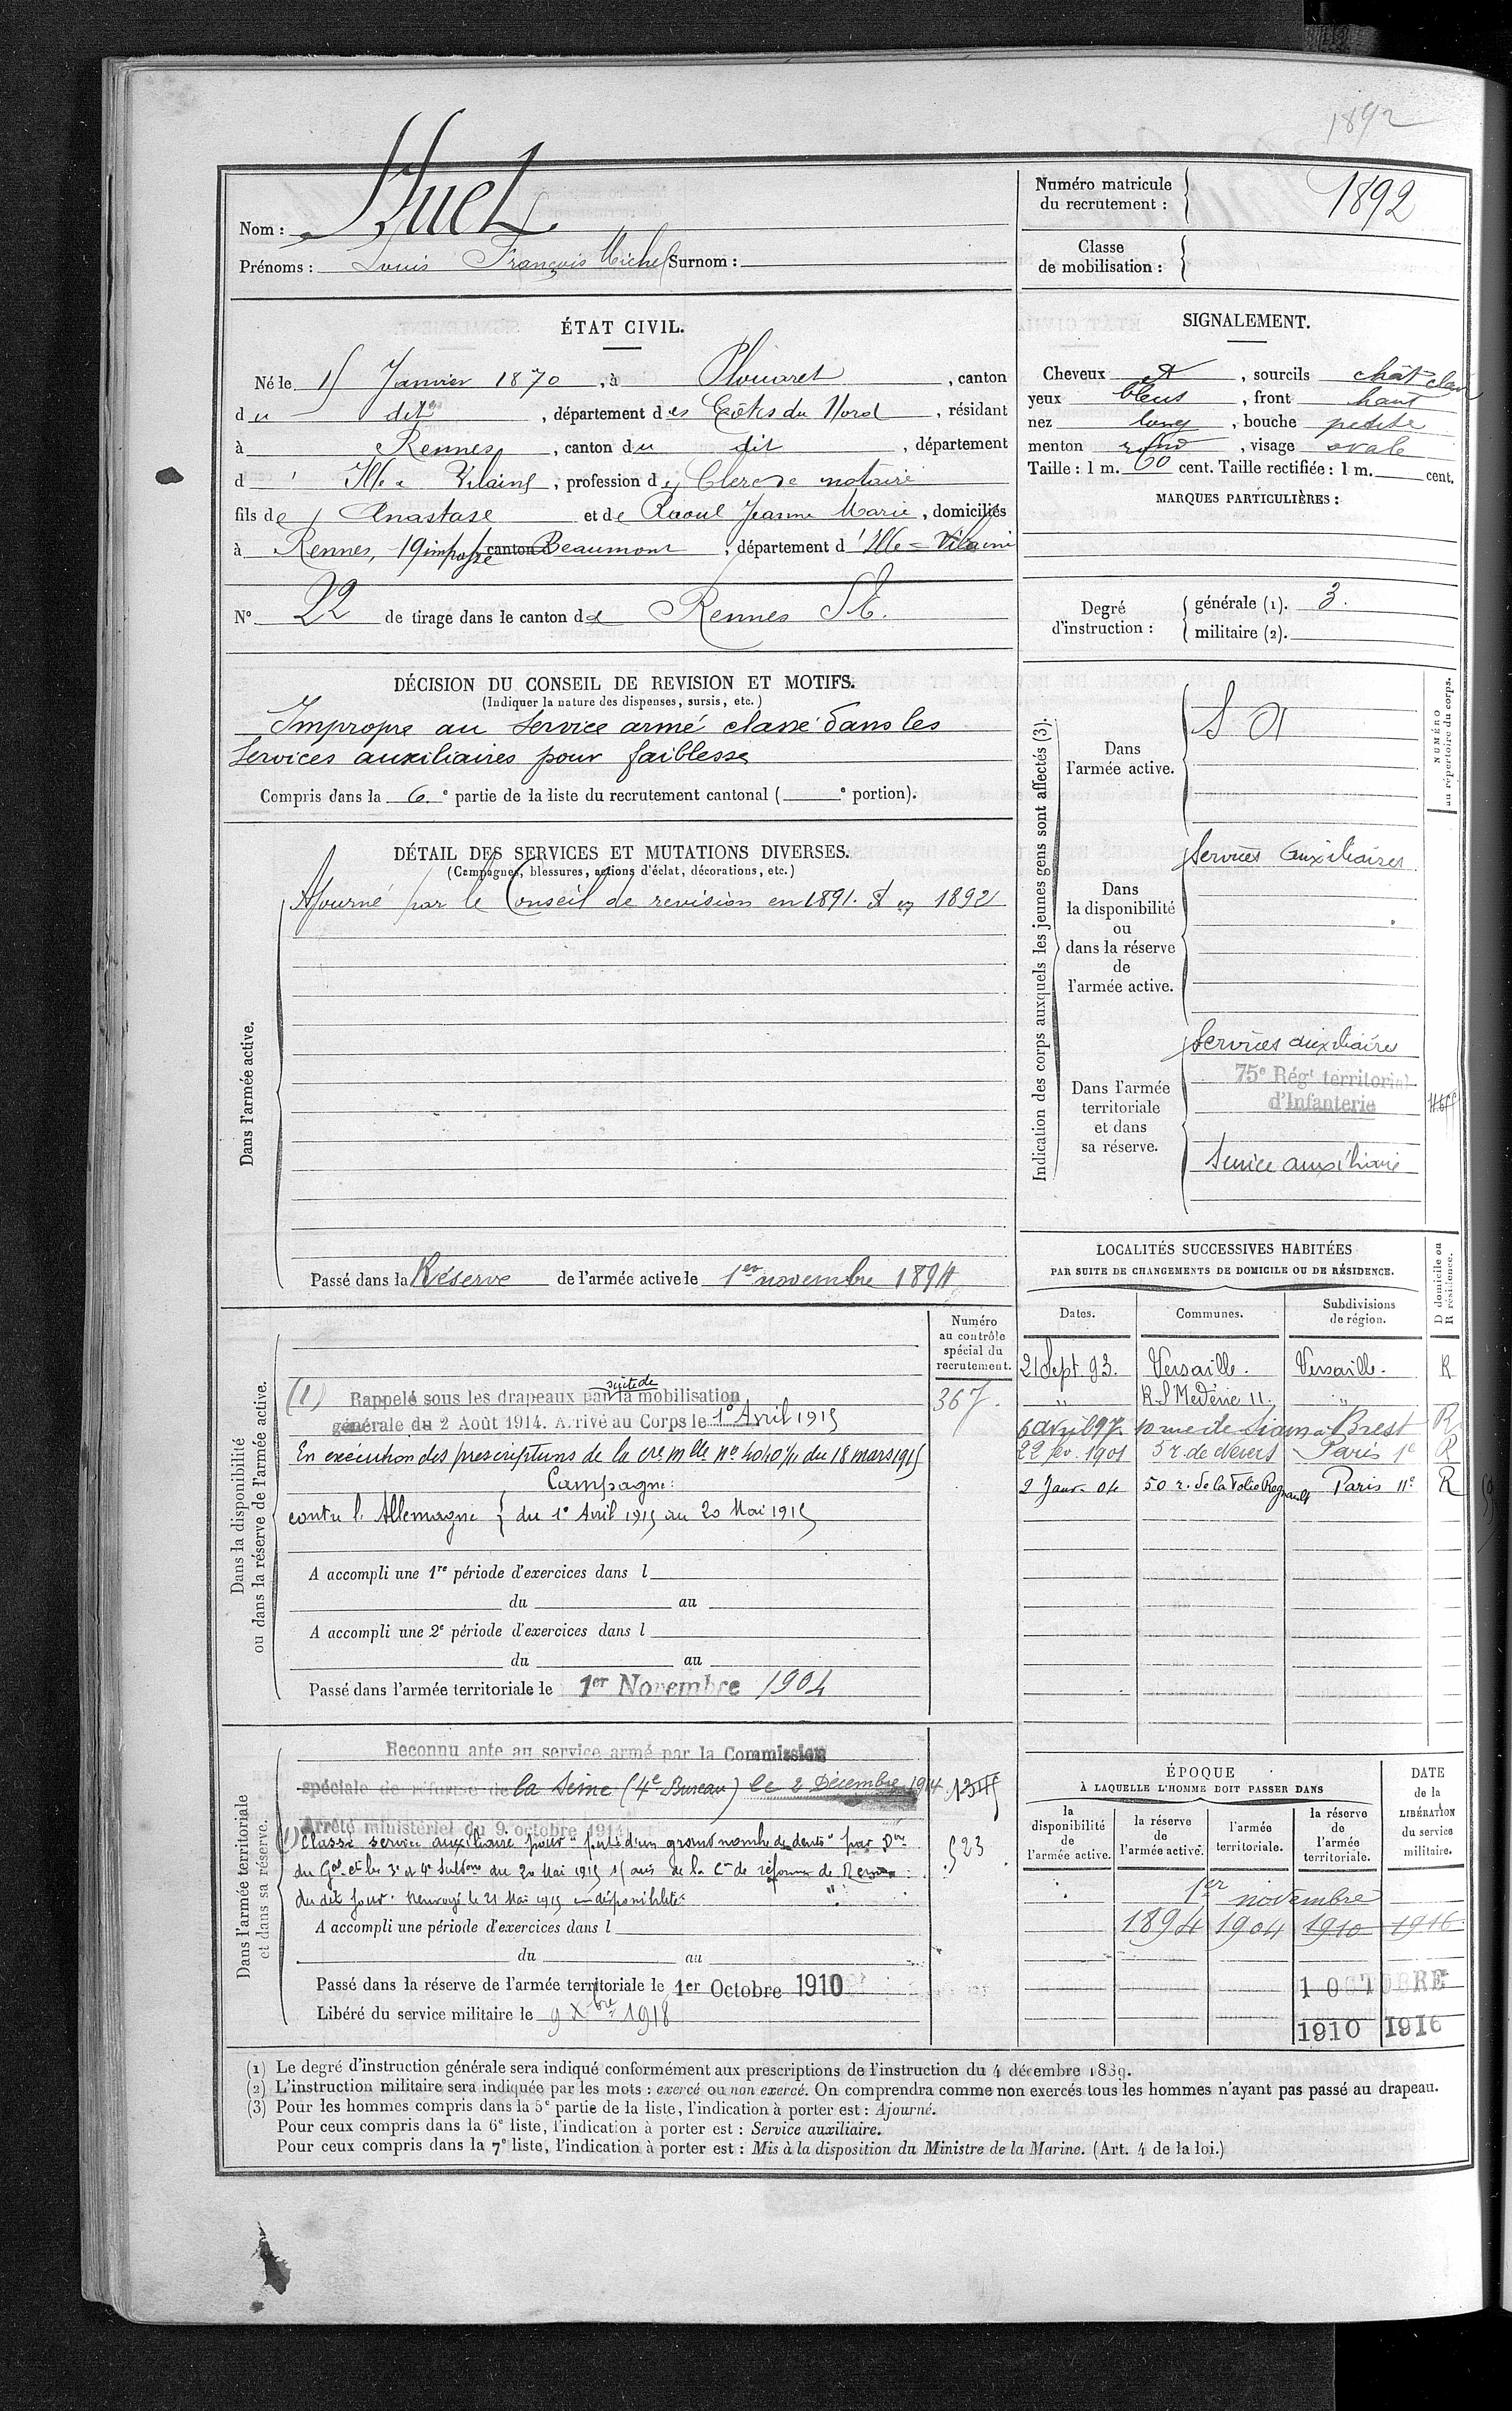 1892
Nom : Huet
Prénoms : Louis François Michel Surnom :
Numéro matricule
du recrutement :
1892
Classe
de mobilisation :
ÉTAT CIVIL.
Né le 15 Janvier 1870, à Plouaret, canton
du dit, département des Côtes du Nord, résidant
à Rennes, canton du dit, département
d' Ille & Vilaine, profession de Clerc de notaire
fils de Anastase et de Raoul Jeanne Marie, domiciliés
à Rennes, 19 impasse canton Beaumont, département d'Ille & Vilaine
N° 22 de tirage dans le canton de Rennes S E.
SIGNALEMENT.
Cheveux et, sourcils chât clair
yeux bleus, front haut
nez long, bouche petite
menton rond, visage ovale
Taille : 1 m. 60 cent. Taille rectifiée : 1 m. cent.
MARQUES PARTICULIÈRES :
Degré
d'instruction :
générale (1). 3.
militaire (2).
DÉCISION DU CONSEIL DE REVISION ET MOTIFS.
(Indiquer la nature des dispenses, sursis, etc.)
Impropre au Service armé classé dans les
Services auxiliaires pour faiblesse
Compris dans la 6.e partie de la liste du recrutement cantonal ( e portion).
DÉTAIL DES SERVICES ET MUTATIONS DIVERSES.
(Campagnes, blessures, actions d'éclat, décorations, etc.)
Dans l'armée active.
Ajourné par le Conseil de revision en 1891. Et en 1892
Passé dans la Réserve de l'armée active le 1er novembre 1894
Indication des corps auxquels les jeunes gens sont affectés (3).
NUMÉRO
au répertoire du corps.
Dans
l'armée active.
S A
Dans
la disponibilité
ou
dans la réserve
de
l'armée active.
Services Auxiliaires
Dans l'armée
territoriale
et dans
sa réserve.
Services auxiliaires
75e Régt territorial
d'Infanterie
Service auxiliaire
LOCALITÉS SUCCESSIVES HABITÉES
PAR SUITE DE CHANGEMENTS DE DOMICILE OU DE RÉSIDENCE.
D domicile ou
R résidence.
Dates.
Communes.
Subdivisions
de région.
21 Sept. 93. Versaille. Versaille. R
" R. St Médéric 11. "
6 avril 97 10 rue de Siam à Brest R
22 fév. 1901 5 r. de Nevers Paris 1e R
2 Janv. 04 50 r. de la Folie Regnault Paris 11e R
Dans la disponibilité
ou dans la réserve de l'armée active.
Numéro
au contrôle
spécial du
recrutement.
367.
(1) Rappelé sous les drapeaux par suite de la mobilisation
générale du 2 Août 1914. Arrivé au Corps le 1er Avril 1915
En exécution des prescriptions de la cre mlle no 4040 1/11 du 18 mars 1915
Campagne :
contre l'Allemagne { du 1er Avril 1915 au 20 Mai 1915
A accompli une 1re période d'exercices dans l
du au
A accompli une 2e période d'exercices dans l
du au
Passé dans l'armée territoriale le 1er Novembre 1904
Dans l'armée territoriale
et dans sa réserve.
Reconnu apte au service armé par la Commission
spéciale de réforme de la Seine (4e Bureau) le 2 Décembre 1914
Arrêté ministériel du 9 octobre 1914
(1) Classé service auxiliaire pour "perte d'un grand nombre de dents" par Don
du Gal ct les 3e et 4e Subdons du 20 Mai 1915 s/ avis de la Con de réforme de Rennes
du dit jour. Renvoyé le 21 Mai 1915 en disponibilité
523
A accompli une période d'exercices dans l
du au
Passé dans la réserve de l'armée territoriale le 1er Octobre 1910
Libéré du service militaire le 9 Xbre 1918
ÉPOQUE
À LAQUELLE L'HOMME DOIT PASSER DANS
DATE
de la
LIBÉRATION
du service
militaire.
la
disponibilité
de
l'armée active.
la réserve
de
l'armée active.
l'armée
territoriale.
la réserve
de
l'armée
territoriale.
1er novembre
1894 1904 1910 1916
1 OCTOBRE
1910 1916
(1) Le degré d'instruction générale sera indiqué conformément aux prescriptions de l'instruction du 4 décembre 1889.
(2) L'instruction militaire sera indiquée par les mots : exercé ou non exercé. On comprendra comme non exercés tous les hommes n'ayant pas passé au drapeau.
(3) Pour les hommes compris dans la 5e partie de la liste, l'indication à porter est : Ajourné.
Pour ceux compris dans la 6e liste, l'indication à porter est : Service auxiliaire.
Pour ceux compris dans la 7e liste, l'indication à porter est : Mis à la disposition du Ministre de la Marine. (Art. 4 de la loi.)